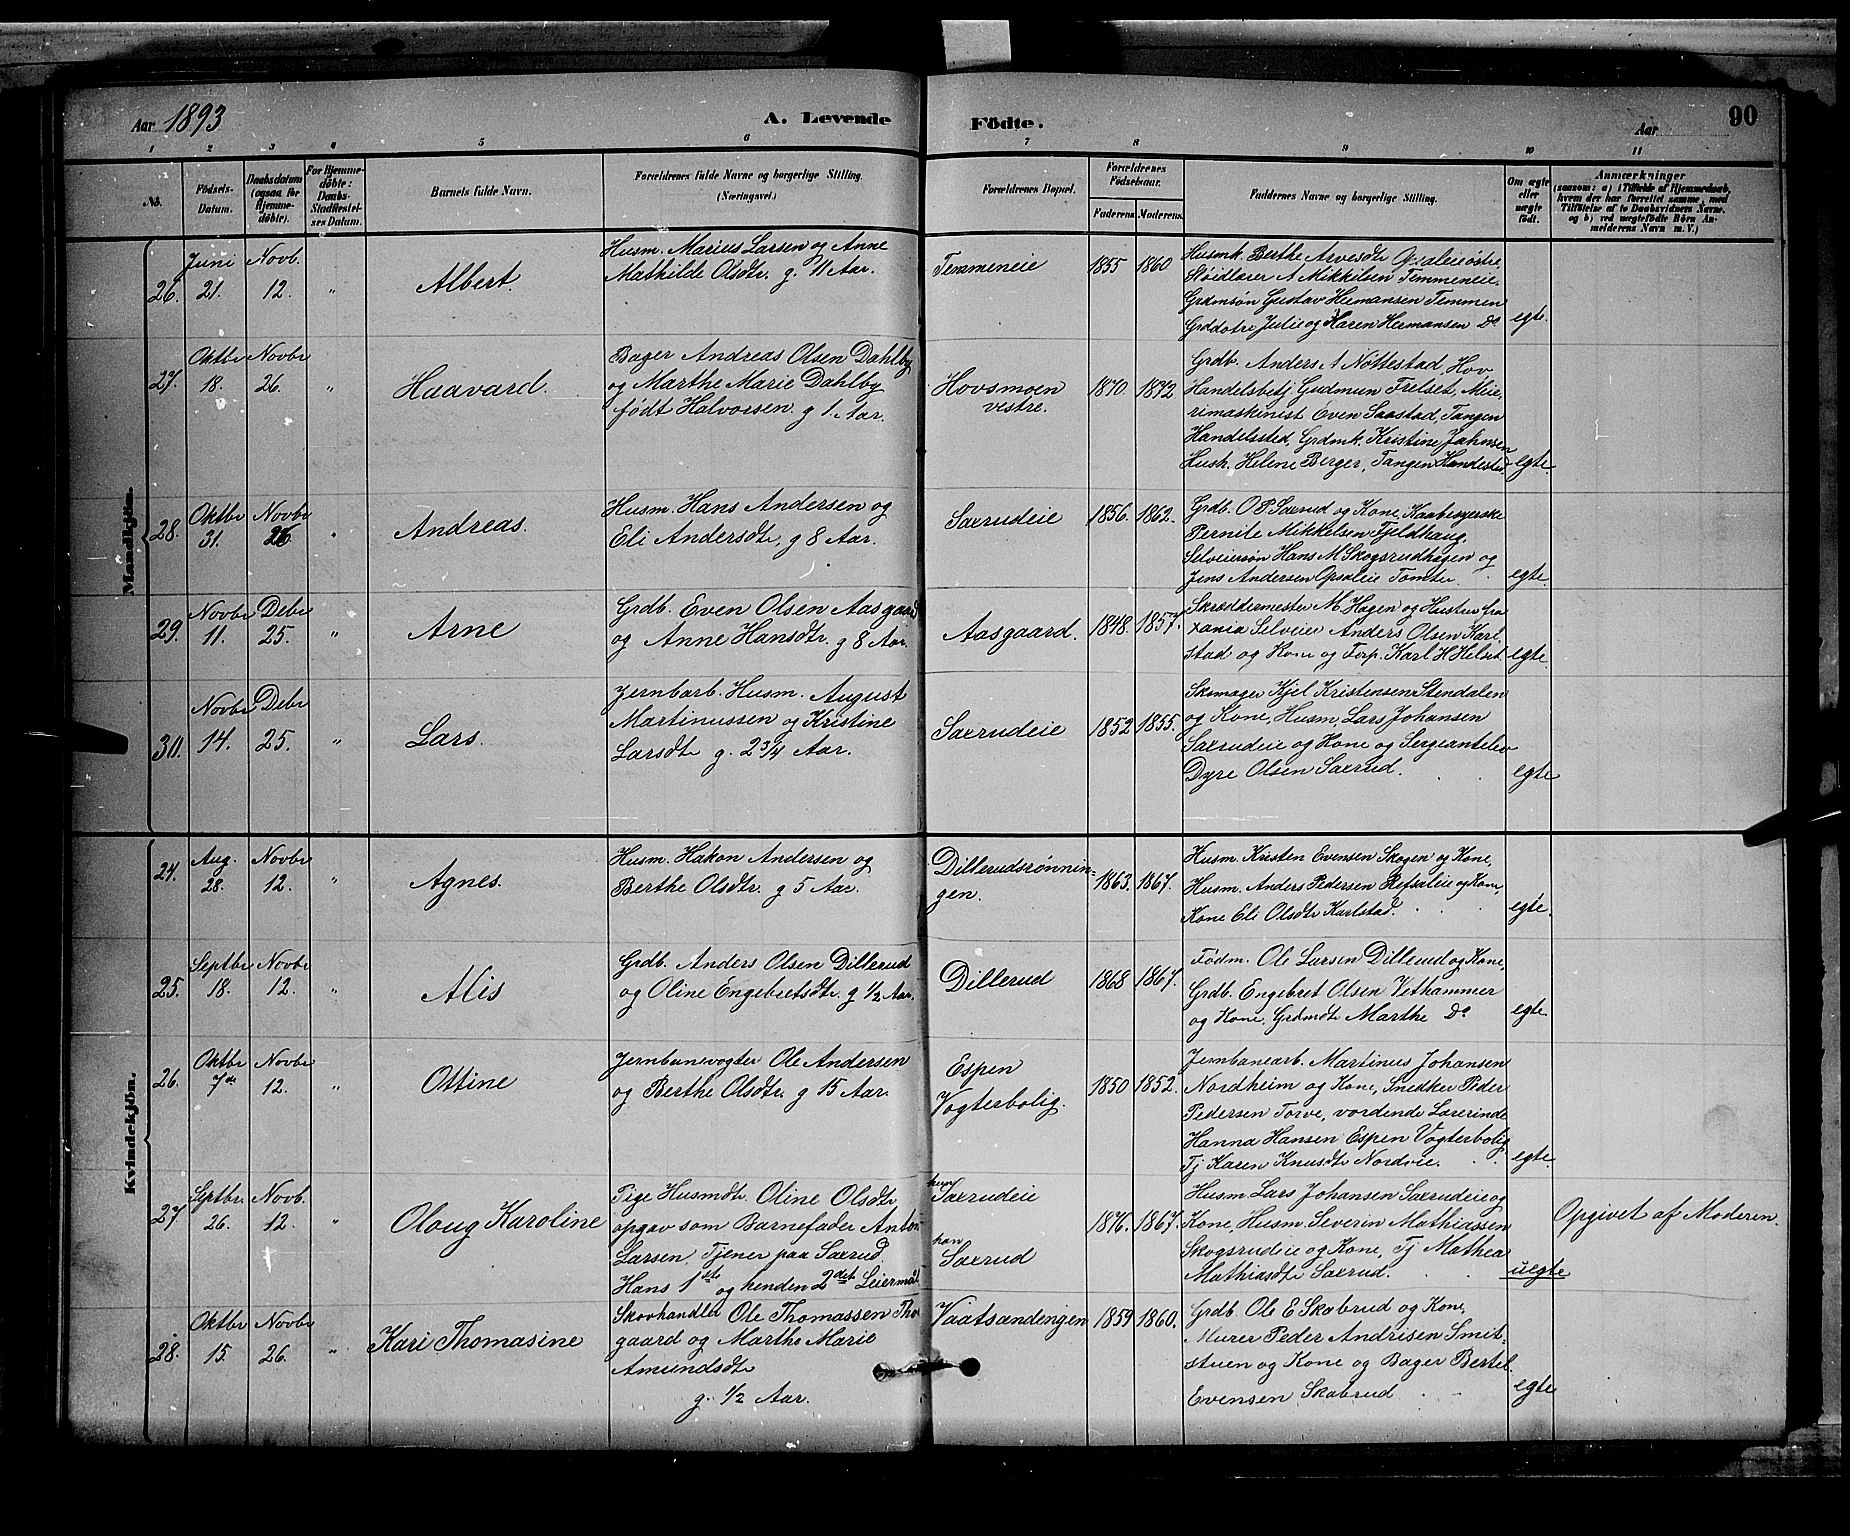 Aar 1893
A. Levende
Födte.
Aar
90
1 2 3 4 5 6 7 8 9 10 11
No.
Födsels-
Datum.
Daabsdatum
(ogsaa for
Hjemme-
döbte).
For Hjemme-
döbte:
Daabs-
Stadfæstel-
ses Datum.
Barnets fulde Navn.
Forældrenes fulde Navne og borgerlige Stilling.
(Næringsvei.)
Forældrenes Bopæl.
Forældrenes
Födselsaar.
Faderens. Moderens.
Faddernes Navne og borgerlige Stilling.
Om ægte
eller
uægte
födt.
Anmærkninger
(saasom: a) i Tilfælde af Hjemmedaab,
hvem der har forrettet samme, med
Tilföielse af to Daabsvidners Navne,
og b) ved uægtefödte Börn An-
melderens Navn m. V.)
Mandkjön.
26. Juni 21. Novb. 12. "
Albert.
Husm. Marius Larsen og Anne
Mathilde Olsdtr. g. 11 Aar.
Temmeneie
1855 1860
Husmk. Berthe Arvesdtr
Støidlører A Mikkilsen Temmeneie,
Grdmsøn Gustav Hermansen Temmen
Grddøtre Julie og Karen Hermansen Do
egte.
27. Oktbr 18. Novbr 26. "
Haavard.
Bager Andreas Olsen Dahlby
og Marthe Marie Dahlby
født Halvorsen. g 1 Aar.
Hovsmoen
vestre.
1870. 1872
Grdb. Anders A Nøttestad Hov
Handelsbetj Gudmun Frelset, Meie-
rimaskinist Even Saastad, Tangen
Handelssted, Grdmk. Kristine Jahnsen
Hush. Helene Berger, Tangen Handelssted
egte.
28. Oktbr 31. Novbr 26 "
Andreas.
Husm. Hans Andersen og
Eli Andersdtr, g 8 Aar.
Saxrudeie
1856. 1862.
Grdb. O P. Saxrud og Kone,
Pernile Mikkelsen Fjeldhaug,
Selveiersøn Hans M Skogsrudhagen og
Jens Andersen Opsaleie Tomter.
egte.
29. Novbr 11. Debr 25. "
Arne
Grdb. Even Olsen Aasgaard
og Anne Hansdtr. g 8 Aar.
Aasgaard.
1848. 1857.
Skræddermester M. Hagen og Hustru fra
xania Selveier Anders Olsen Karl-
stad og Kone og Forp. Karl H Helset
egte.
30. Novbr 14. Debr 25. "
Lars.
Jernbarb. Husm. August
Martinussen og Kristine
Larsdtr g. 2 3/4 Aar.
Saxrudeie
1852 1855.
Skomager Kjel Kristensen Stendalen
og Kone, Husm, Lars Johansen
Saxrudeie og Kone og Sergeantelev
Dyre Olsen Saxrud.
egte
Kvindekjön.
24. Aug. 28. Novbr 12. "
Agnes.
Husm. Hakon Andersen og
Berthe Olsdtr. g 5 Aar.
Dillerudsrønnin-
gen.
1863. 1867.
Husm. Kristen Evensen Skogen og Kone,
Husm. Anders Pedersen Refsaleie og Kone,
Kone Eli Olsdtr Karlstad.
egte.
25. Septbr 18. Novbr 12. "
Alis
Grdb. Anders Olsen Dillerud
og Oline Engebretsdtr. g 1/2 Aar.
Dillerud
1868 1867.
Fødm. Ole Larsen Dillerud og Kone,
Grdb. Engebret Olsen Vethammer
og Kone, Grdmdtr Marthe Do
egte
26. Oktbr 7de Novbr 12. "
Ottine
Jernbanevogter Ole Andersen
og Berthe Olsdtr. g 15 Aar.
Espen
Vogterbolig.
1850 1852.
Jernbanearb. Martinus Johansen
Nordheim og Kone, Snedker Peder
Pedersen Torve, vordende Lærerinde
Hanna Hansen Espen Vogterbolig
Tj Karen Knusdtr Nordvie.
egte.
27 Septbr. 26. Novb. 12. "
Olaug Karoline
Pige Husmdtr. Oline Olsdtr
opgav som Barnefader Anton
Larsen, Tjener paa Saxrud.
Hans 1ste og hendes 2det Leiermål.
hun
Saxrudeie
han
Saxrud
1876. 1867.
Husm Lars Johansen Saxrudeie og
Kone, Husm. Severin Mathiassen
Skogsrudeie og Kone, Tj Mathea
Mathiasdtr Saxrud.
uegte
Opgivet af Moderen.
28. Oktbr 15. Novbr 26. "
Kari Thomasine
Skovhandler Ole Thomassen Tho-
gaard og Marthe Marie
Amundsdtr
g. 1/2 Aar.
Vaatsandengen
1859 1860.
Grdb. Ole E Skabrud og Kone,
Murer Peder Andrisen Smit-
stuen og Kone og Bager Bertel
Evensen Skabrud
egte